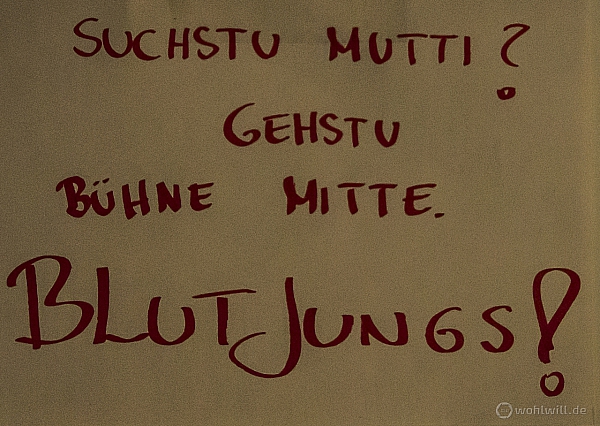 SUCHSTU MUTTI?
GEHSTU
BÜHNE MITTE.
BLUTJUNGS!
wohlwill.de